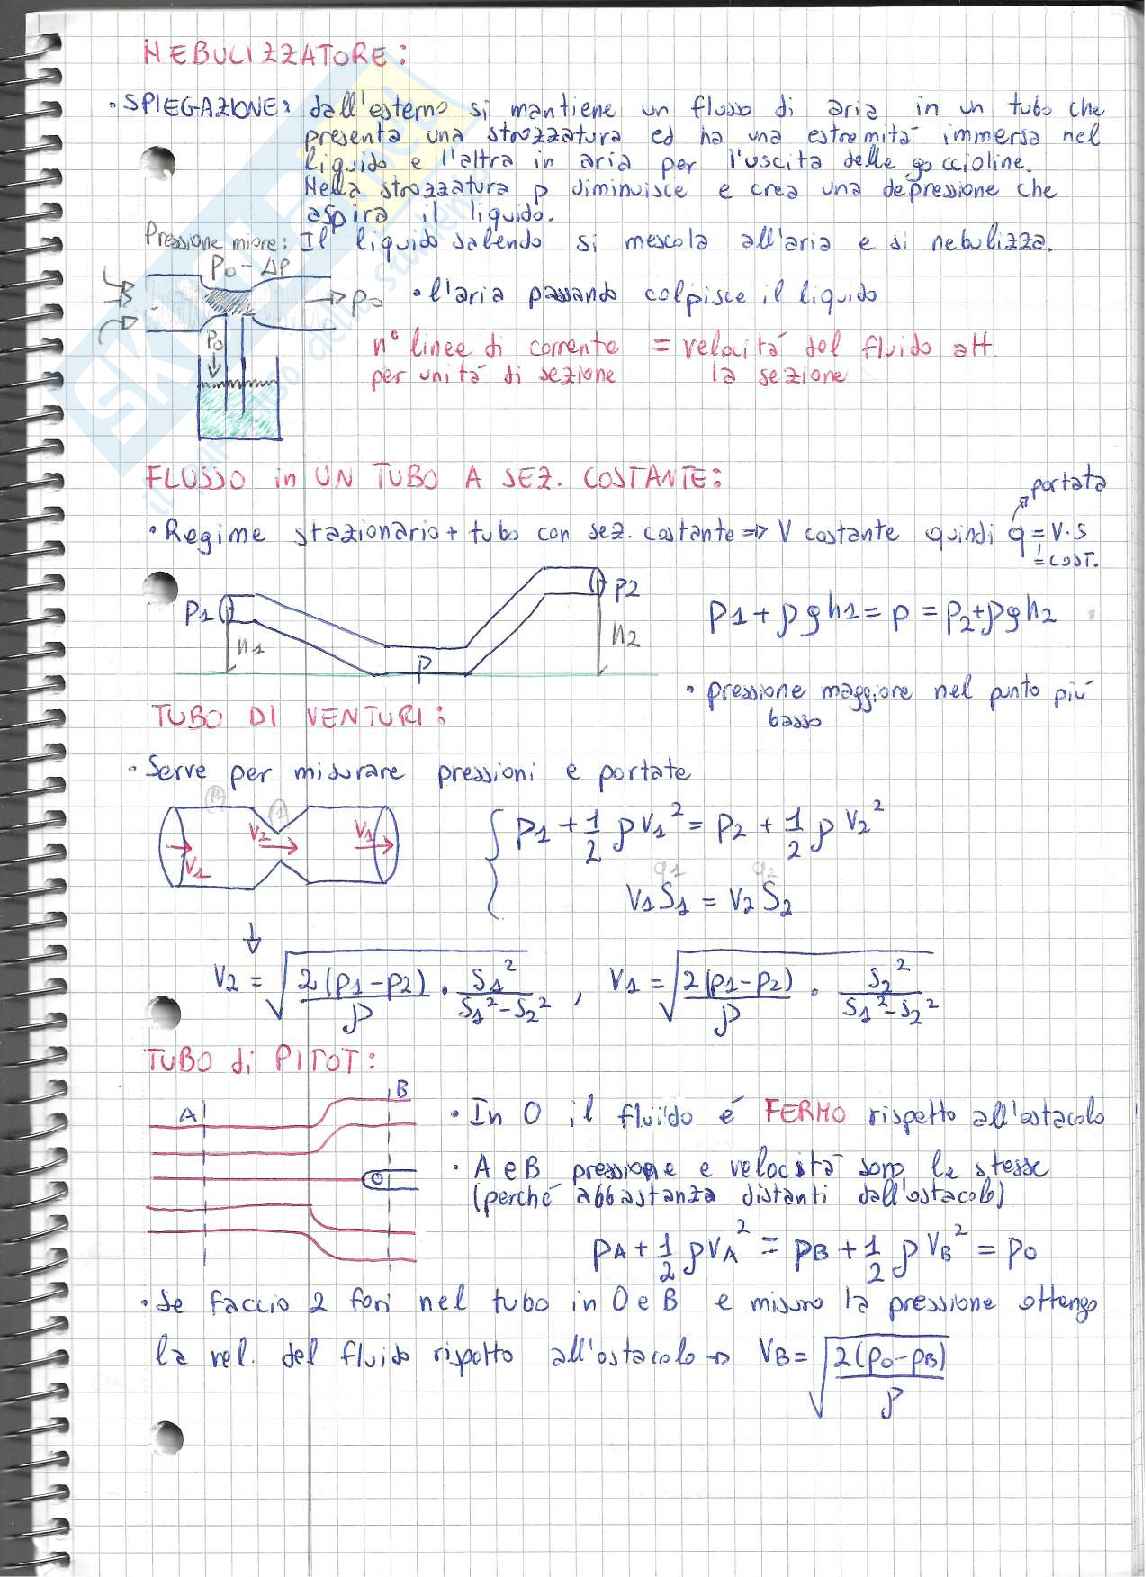 NEBULIZZATORE:
• SPIEGAZIONE: dall'esterno si mantiene un flusso di aria in un tubo che
presenta una strozzatura ed ha una estremità immersa nel
liquido e l'altra in aria per l'uscita delle goccioline.
Nella strozzatura p diminuisce e crea una depressione che
aspira il liquido.
Pressione minore: Il liquido salendo si mescola all'aria e si nebulizza.
P0 - ΔP
P0
• l'aria passando colpisce il liquido
P0
n° linee di corrente = velocità del fluido att.
per unità di sezione la sezione
FLUSSO in UN TUBO A SEZ. COSTANTE:
portata
• Regime stazionario + tubo con sez. costante => V costante quindi q = V·S
= COST.
P1 P2
h1 h2
p
p1 + ρgh1 = p = p2 + ρgh2
• pressione maggiore nel punto più
basso
TUBO DI VENTURI:
• Serve per misurare pressioni e portate
V1 V2 V1
p1 + 1/2 ρV1² = p2 + 1/2 ρV2²
q1 q2
V1S1 = V2S2
V2 = √(2(p1-p2)/ρ · S1²/(S1²-S2²)) , V1 = √(2(p1-p2)/ρ · S2²/(S1²-S2²))
TUBO di PITOT:
A B
O
• In O il fluido é FERMO rispetto all'ostacolo
• A e B pressione e velocità sono le stesse
(perché abbastanza distanti dall'ostacolo)
pA + 1/2 ρVA² = pB + 1/2 ρVB² = p0
• Se faccio 2 fori nel tubo in O e B e misuro la pressione ottengo
la vel. del fluido rispetto all'ostacolo → VB = √(2(p0-pB)/ρ)